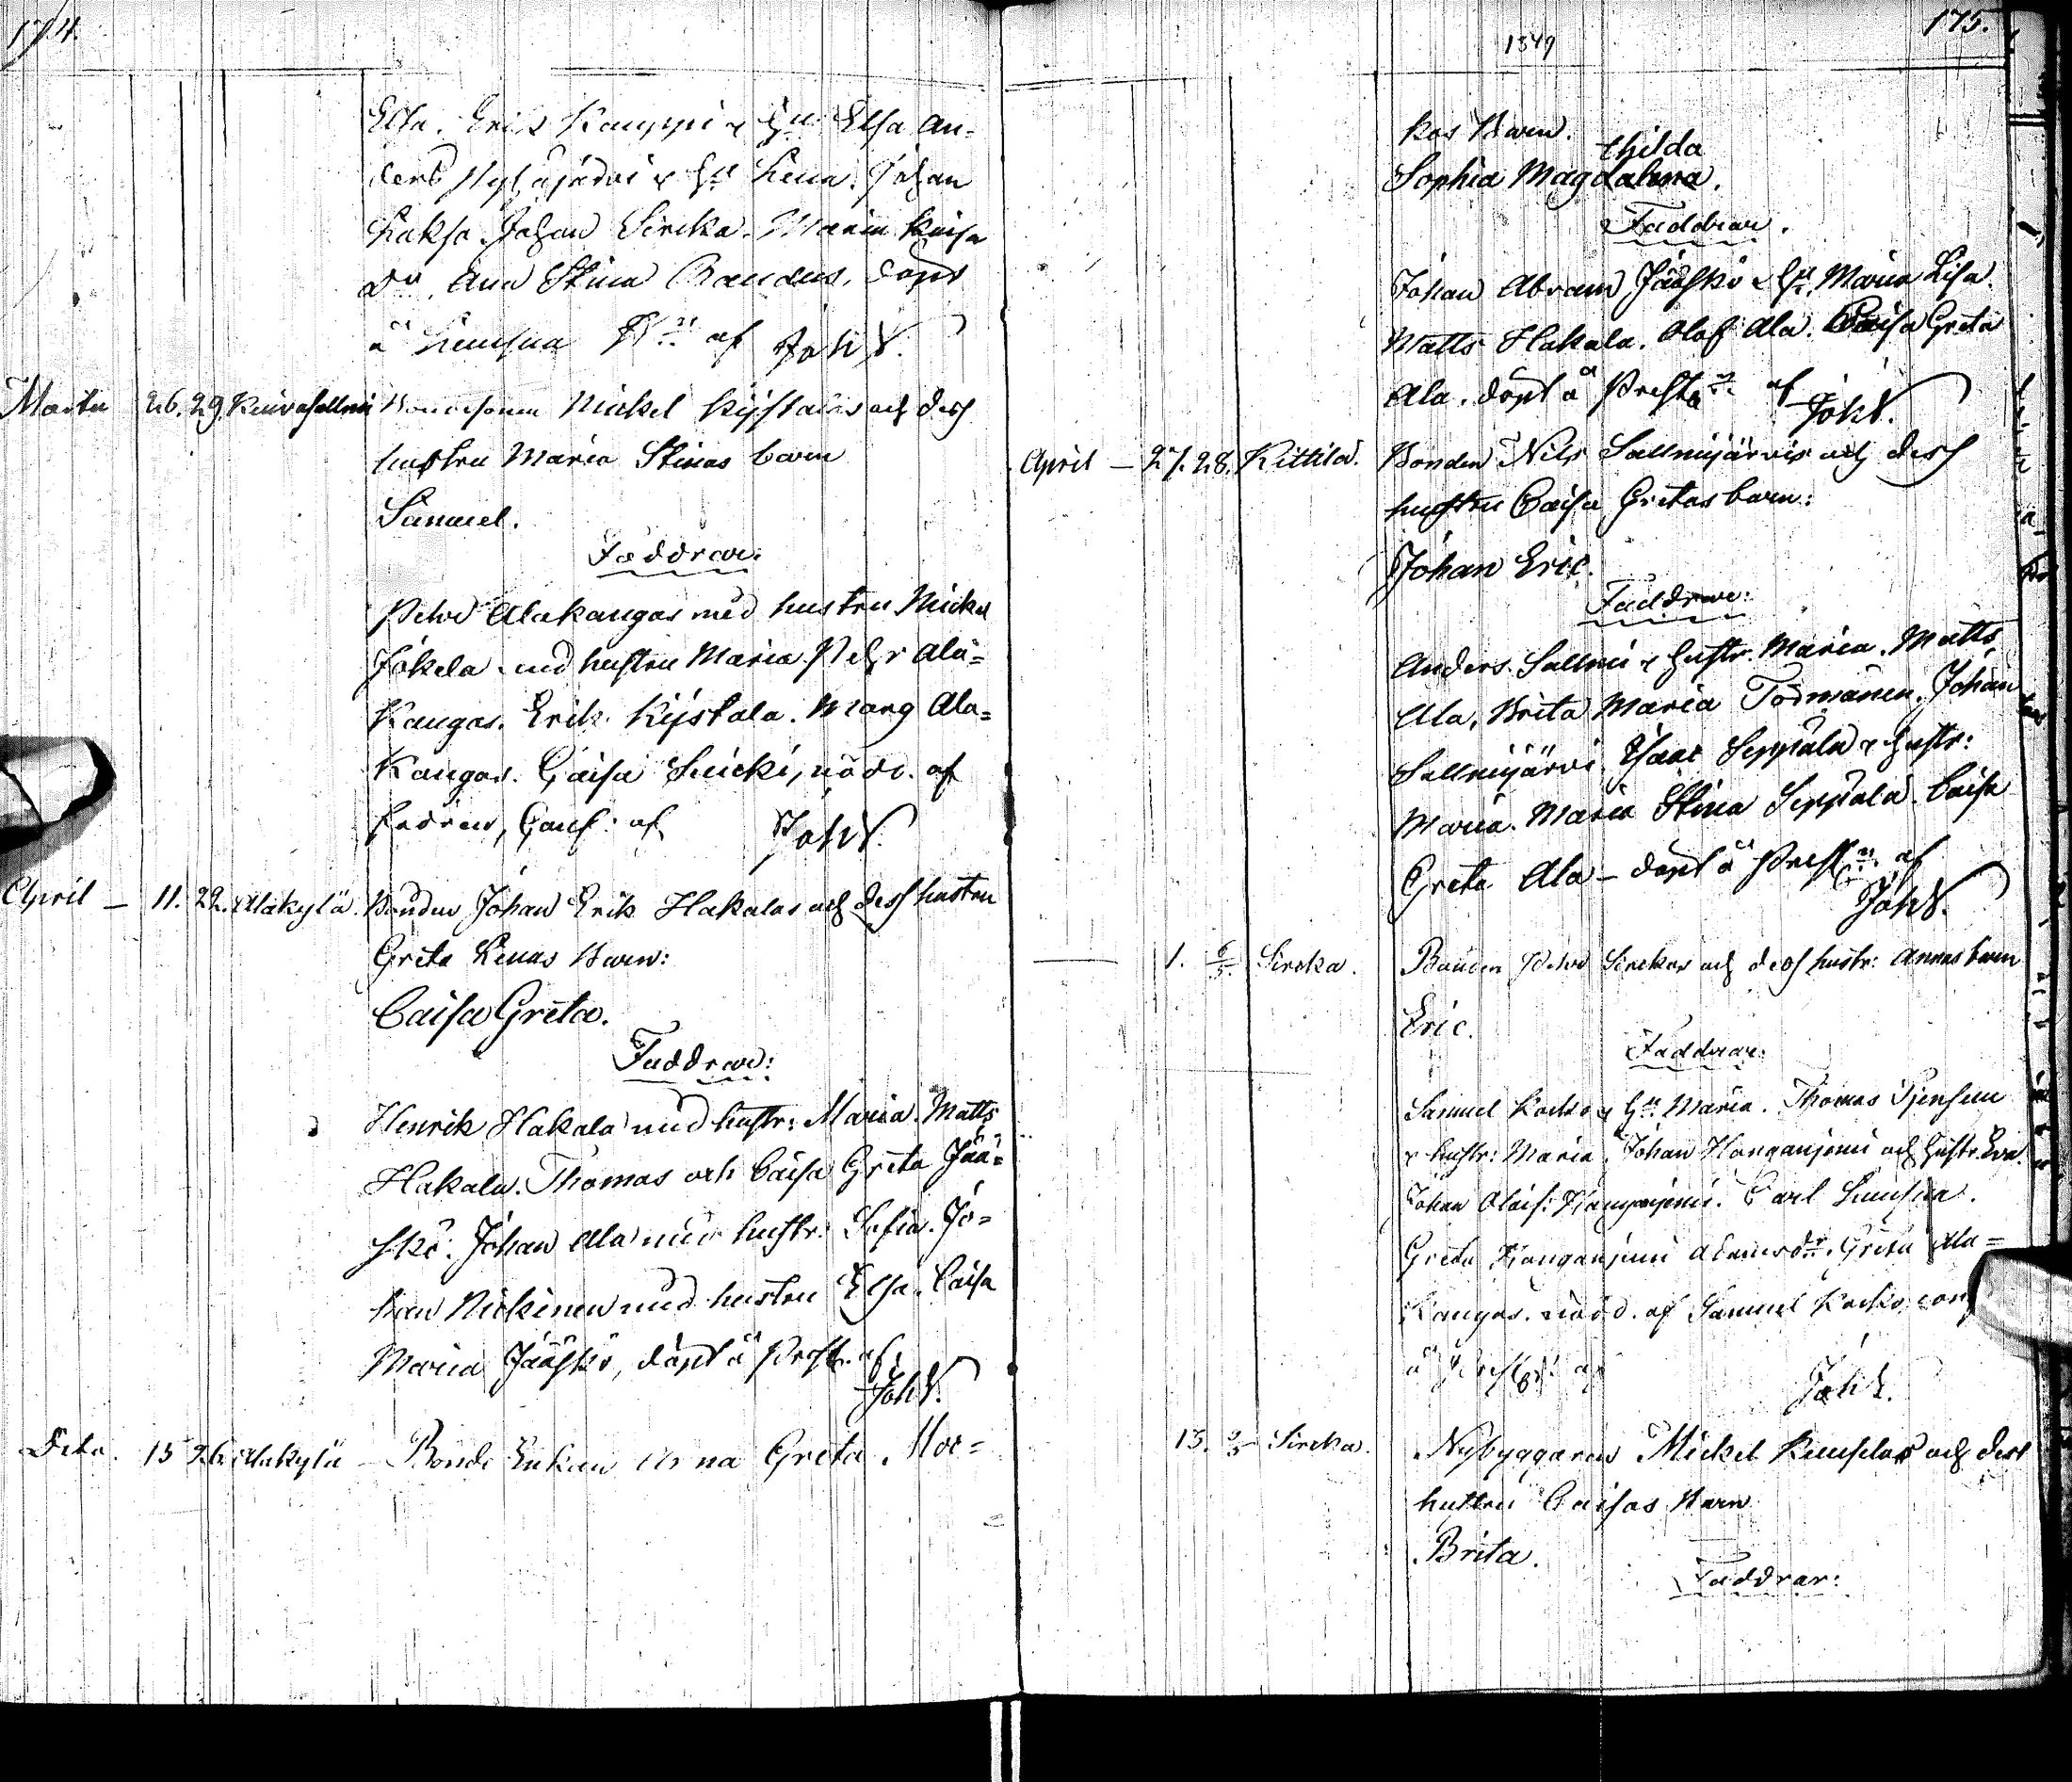 174.
Elsa. Erik Kauppi & Hu Elsa An=
ders Nyhäjärvi & Hu Lena. Johan
Johan Sircka. Maria Kaisa
Do. Ann Stina döpt
å af Joh V.
Martii 26. 29. Bondesonen Mickel Kystalas och dess
hustru Maria Stinas barn
Samuel.
Faddrar:
Petter Alakangas med hustru Mickel
Jokela med hustru Maria. Pehr Ala=
Kangas. Erik Kystala. Marg Ala=
Kangas. Caisa nöd. af
fadren, Conf: af Joh V.
April — 11. 22. Alakylä. Bonden Johan Erik Hakalas och dess hustru
Greta Lenas Barn:
Caisa Greta.
Faddrar:
Henrik Hakala med hustr: Maria. Matts
Hakala. Thomas och Caisa Greta Jää=
skö. Johan Ala med hustr: Sofia. Jo=
han Nickinen med hustru Elsa. Caisa
Maria Jääskö, döpt å Prestg. af
Joh V.
Dito. 15 26. Alakylä Bonde Enkan Anna Greta
1849
175.
kos Barn.
thilda
Sophia Magdalena.
Faddrar.
Johan Abram Jääskö & Hu Maria Lisa.
Matts Hakala. Olof Ala. Caisa Greta
Ala. döpt å Prestg. af Joh V.
April — 27. 28. Kittilä. Bonden Nils Sallmijärvis och dess
hustru Caisa Gretas barn:
Johan Eric.
Faddrar:
Anders Sallmi & hustr. Maria. Matts
Ala, Brita Maria Törmänen. Johan
Sallmijärvi. Isaac Seppälä & hustr:
Maria. Maria Stina Seppälä. Caisa
Greta Ala — döpt å Prestg. af
Joh V.
— 1. 6/5 Sircka. Bonden Petter Sirckas och dess hustr: Annas barn
Eric.
Faddrar:
Samuel Kocko & Hu Maria. Thomas
& hustr: Maria. Johan Honganjemi och hustr. Eva.
Johan Olofs: Honganjemi. Carl
Greta Honganjemi Greta Ala=
Kangas. nödd. af Samuel Kocko, con
å Prestg. af Joh V.
13. Sircka. Nybyggaren Mickel och dess
hustru Caisas Barn
Brita.
Faddrar: